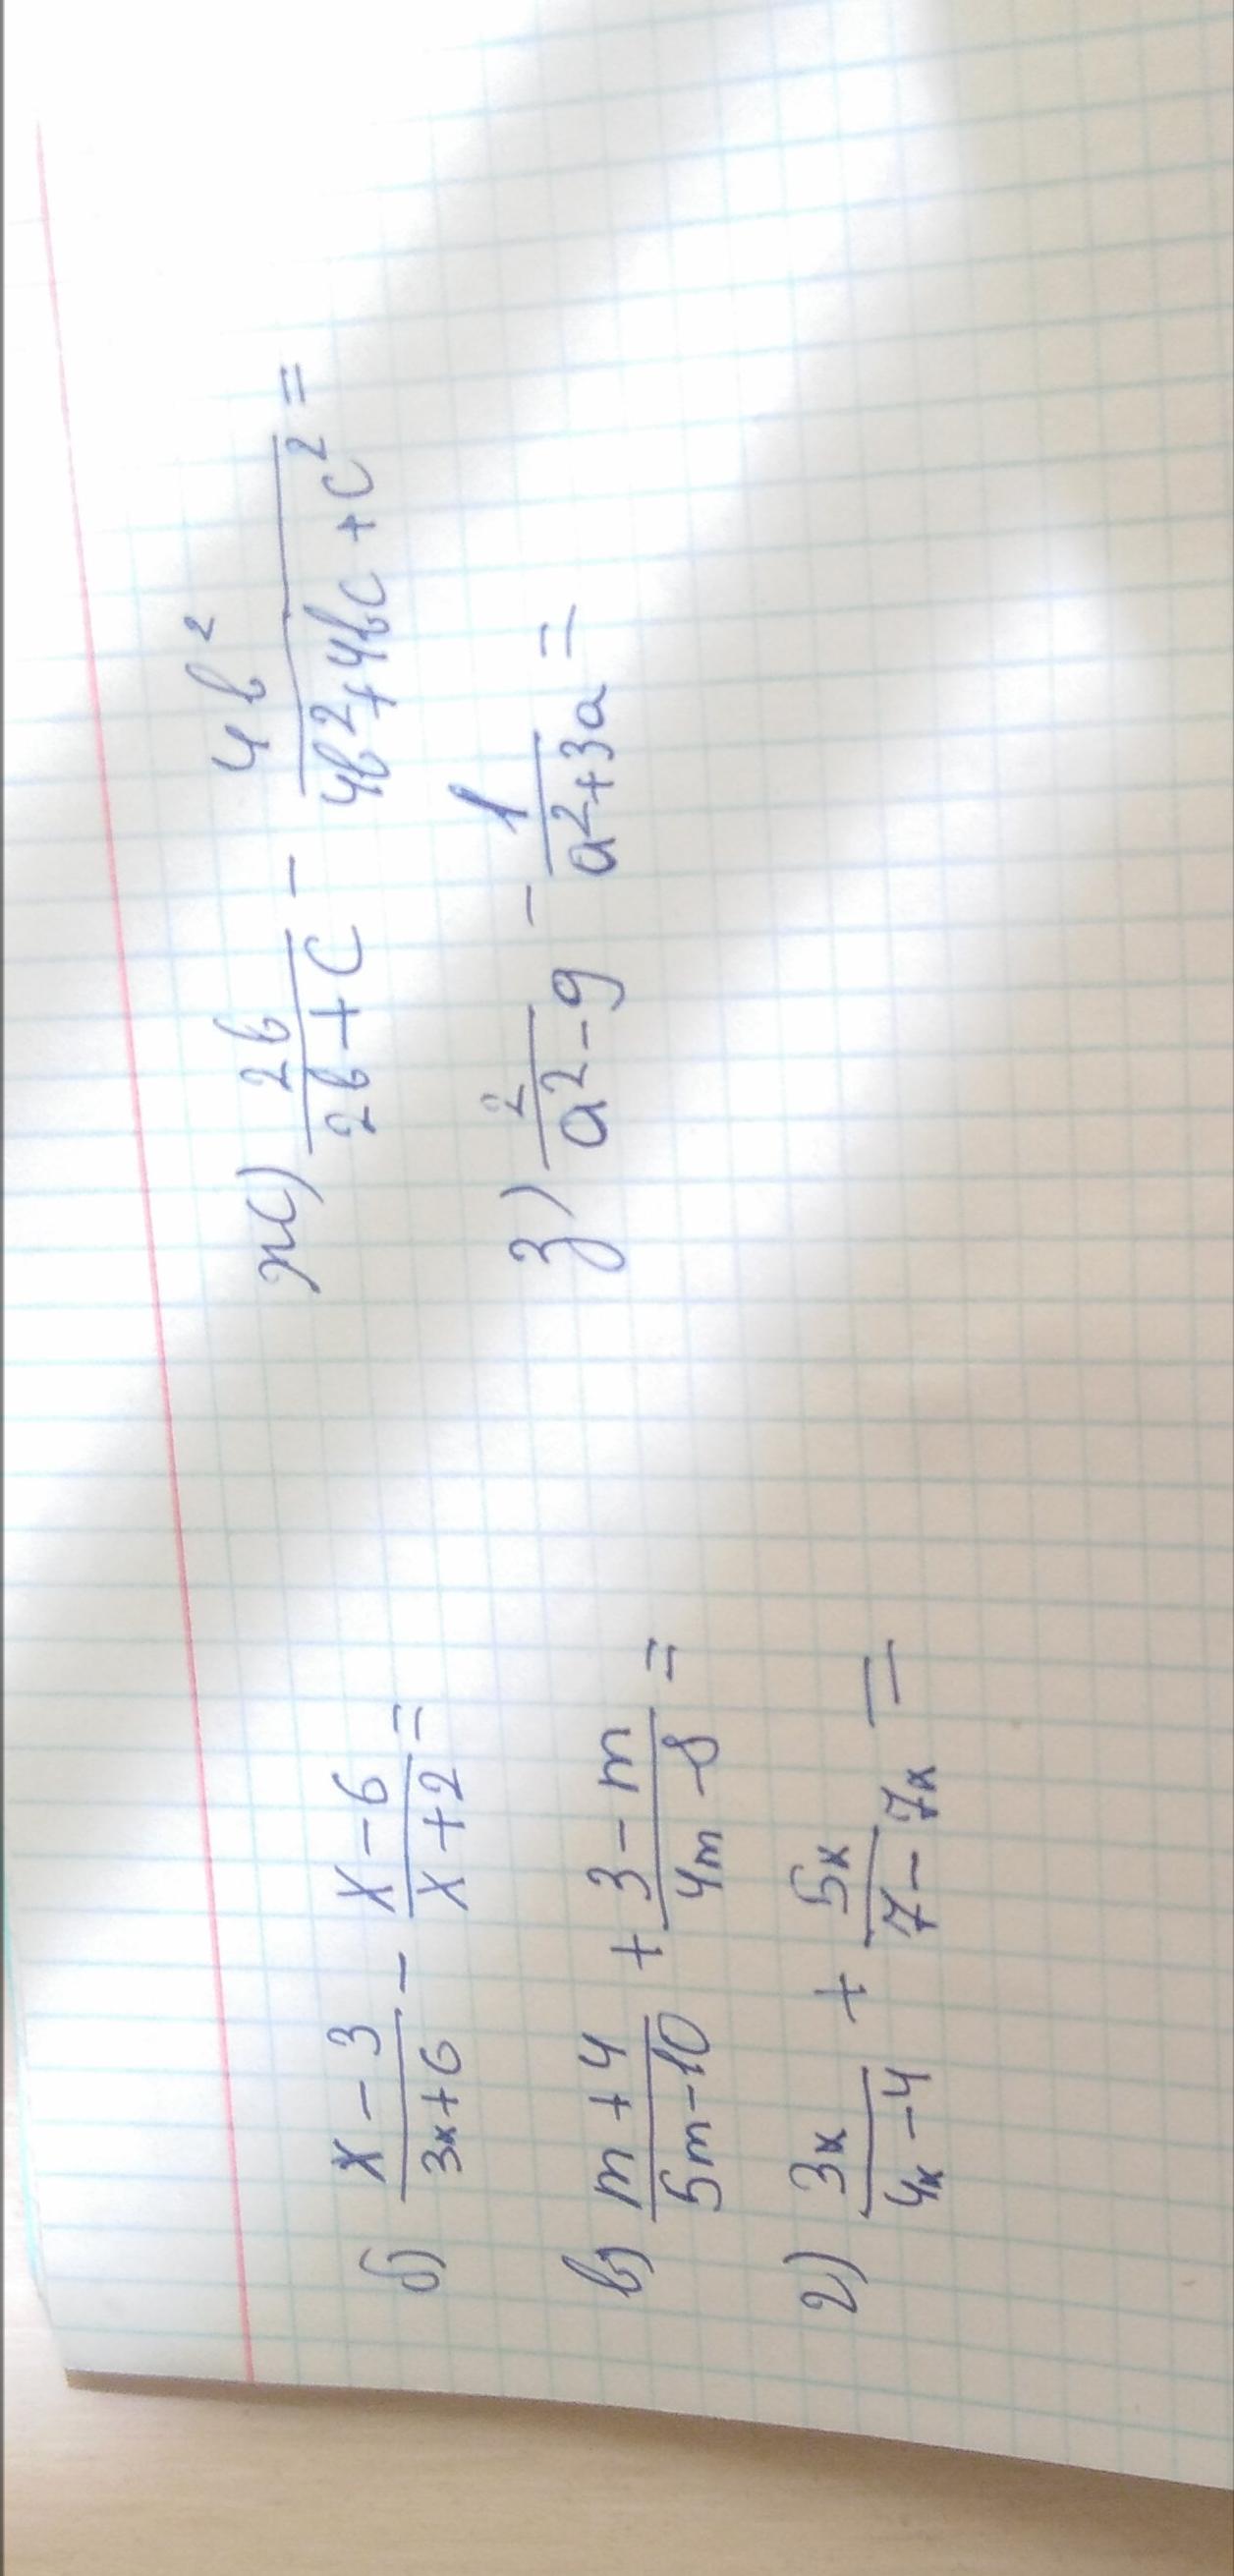 б) (x-3)/(3x+6) - (x-6)/(x+2) =
в) (m+4)/(5m-10) + (3-m)/(4m-8) =
г) 3x/(4x-4) + 5x/(7-7x) =
ж) 2b/(2b+c) - 4b²/(4b²+4bc+c²) =
з) 2/(a²-9) - 1/(a²+3a) =